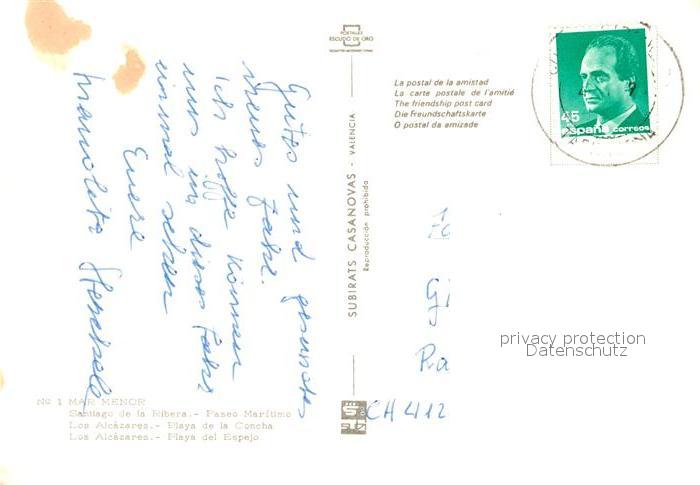 POSTALES
ESCUDO DE ORO
La postal de la amistad
La carte postale de l'amitié
The friendship post card
Die Freundschaftskarte
O postal da amizade
45
españa correos
Gutes und gesundes
neues Jahr.
Ich hoffe können
uns in dieses Jahr
einmal sehen
Euere
Manolita
SUBIRATS CASANOVAS - VALENCIA
Reproducción prohibida
Gi
Ra
CH 412
privacy protection
Datenschutz
Nº 1 MAR MENOR
Santiago de la Ribera.- Paseo Marítimo
Los Alcázares.- Playa de la Concha
Los Alcázares.- Playa del Espejo